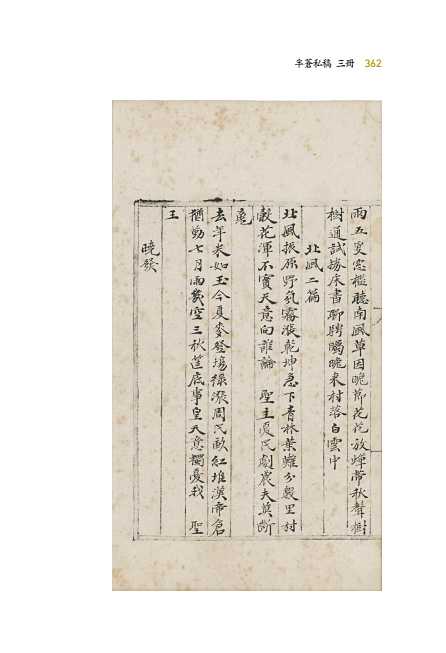 半蒼私稿 三冊 362
雨五更窓檻聽南風草因晚節花花放蟬帶秋聲樹
樹通試掃床書聊騁矚曉來村落白雲中
北風二篇
北風振原野氛霧漲乾坤急下青林葉難分幾里村
穀花渾不實天意向誰論 聖主憂民劇農夫莫斷
魂
去年米如玉今夏麥登場綠漲周民畝紅堆漢帝倉
七月雨 空三秋 底事皇天意獨憂我 聖
王
曉發